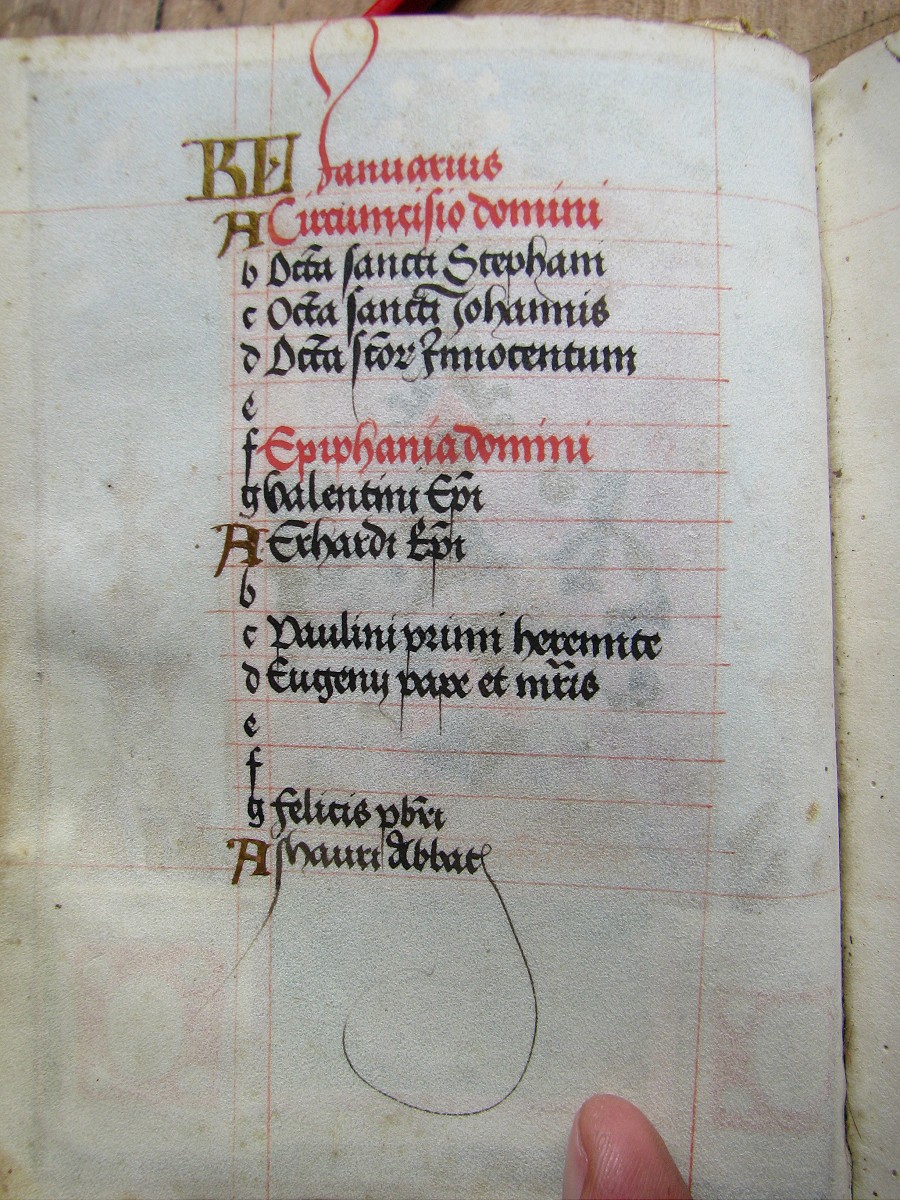 KL Januarius
A Circumcisio domini
b Octa sancti Stephani
c Octa sancti Johannis
d Octa scor Innocentum
e
f Epiphania domini
g Valentini Epi
A Erhardi Epi
b
c Paulini primi heremite
d Eugenij pape et mris
e
f
g Felicis pbri
A Mauri Abbat